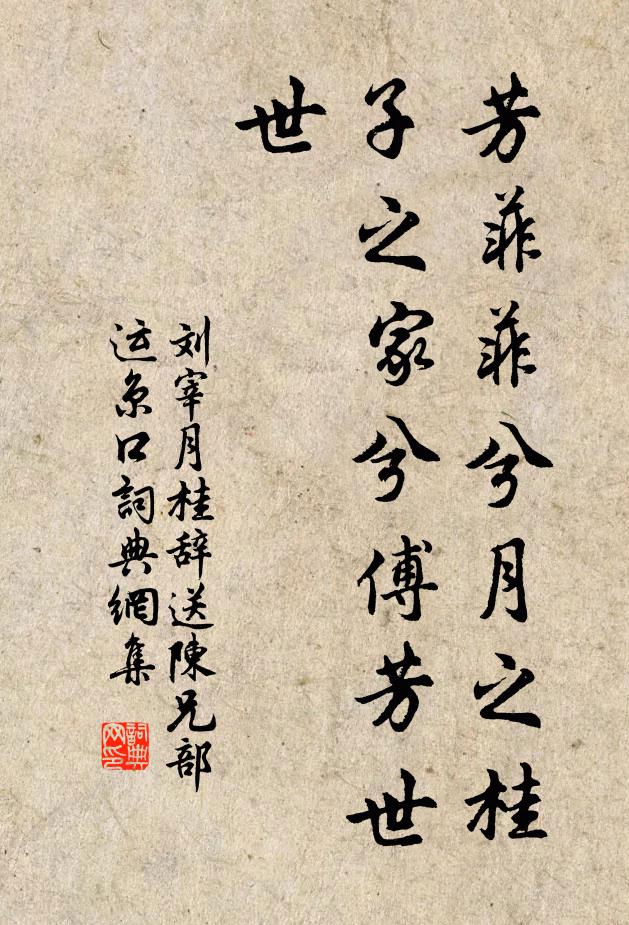 芳菲菲兮月之桂
子之家兮傅芳世
世
刘宰月桂辞送陳兄部
运京口詞典網集
詞典网印